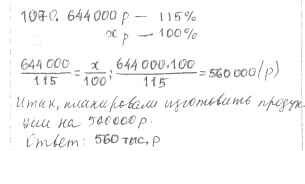 1070. 644000 р — 115%
x р — 100%
644 000 / 115 = x / 100 ; 644 000 · 100 / 115 = 560 000 (р)
Итак, планировали изготовить продук
ции на 560000 р.
Ответ: 560 тыс. р